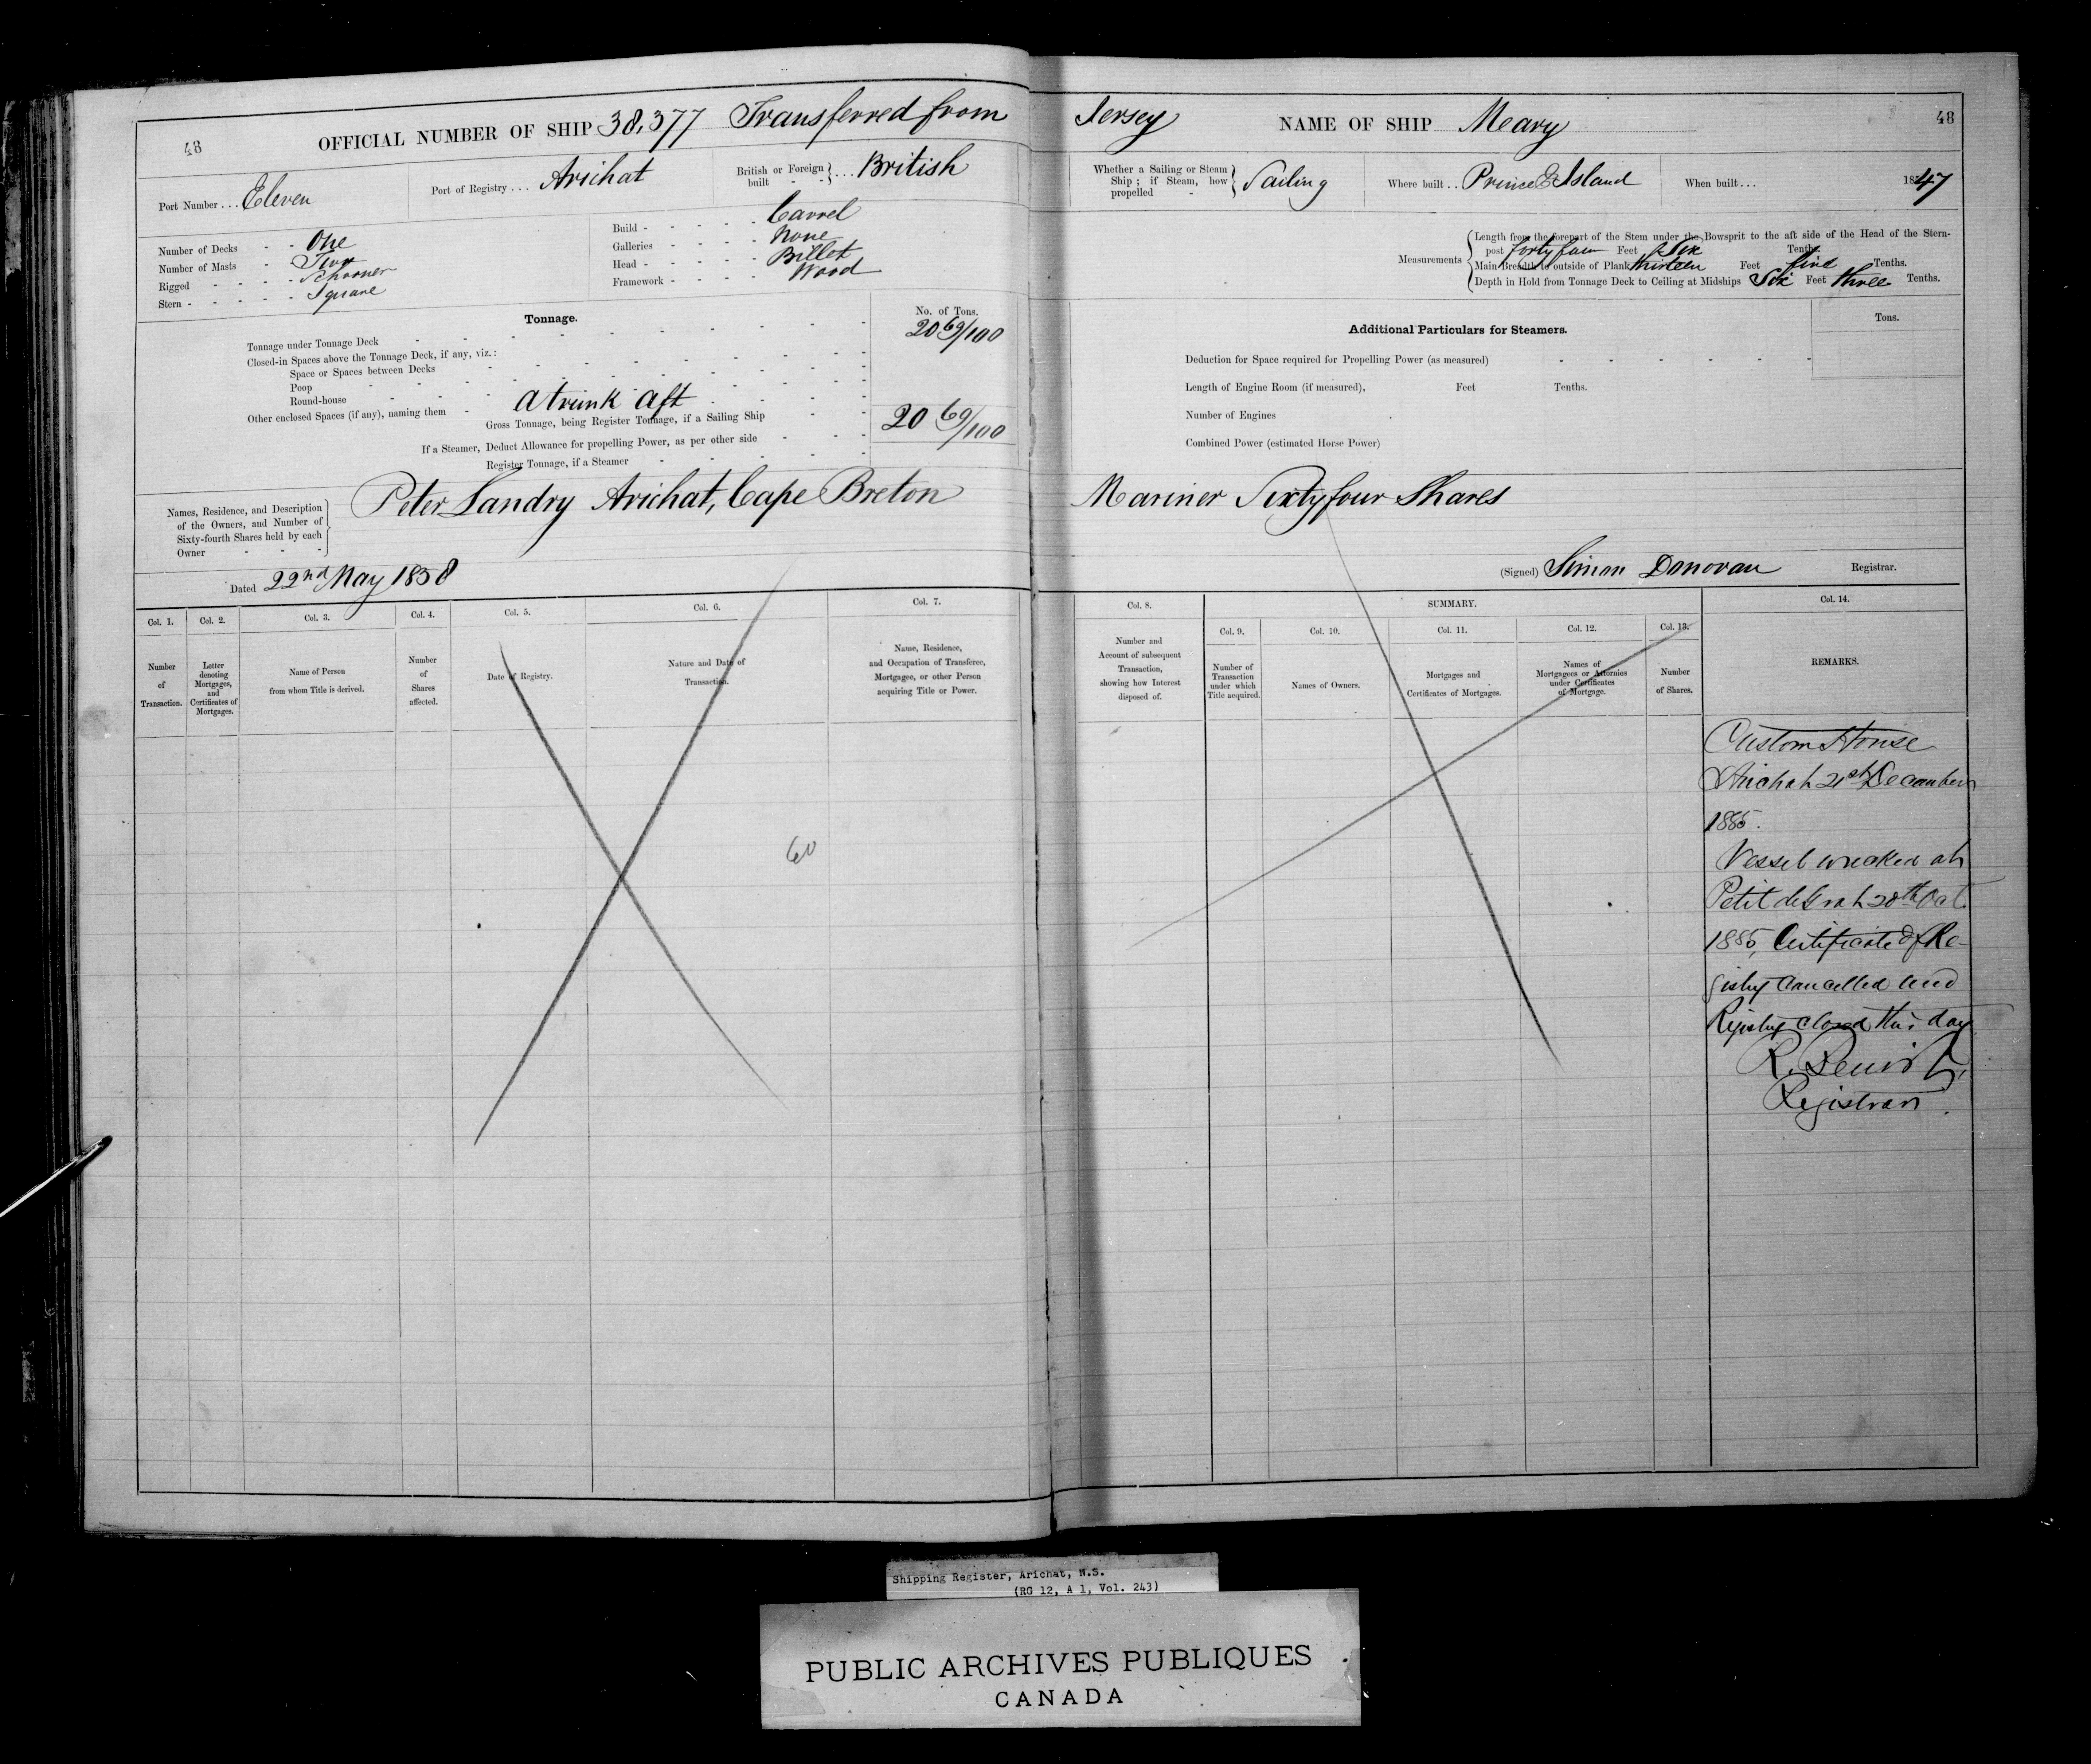 48
OFFICIAL NUMBER OF SHIP 38,377 Transferred from Jersey
NAME OF SHIP Meary
48
Port Number ... Eleven
Port of Registry ... Arichat
British or Foreign built } ... British
Whether a Sailing or Steam Ship ; if Steam, how propelled - } Sailing
Where built .. Prince E Island
When built ... 1847
Number of Decks - - One
Number of Masts - Two
Rigged - - - - Schooner
Stern - - - - - Square
Build - - - - - - Carvel
Galleries - - - - None
Head - - - - - Billet
Framework - - - Wood
Measurements
Length from the forepart of the Stem under the Bowsprit to the aft side of the Head of the Stern-
post forty four Feet & Six Tenths.
Main Breadth to outside of Plank thirteen Feet five Tenths.
Depth in Hold from Tonnage Deck to Ceiling at Midships Six Feet three Tenths.
Tonnage.
No. of Tons.
Tonnage under Tonnage Deck 20 69/100
Closed-in Spaces above the Tonnage Deck, if any, viz.:
Space or Spaces between Decks
Poop
Round-house
Other enclosed Spaces (if any), naming them - a trunk aft
Gross Tonnage, being Register Tonnage, if a Sailing Ship 20 69/100
If a Steamer, Deduct Allowance for propelling Power, as per other side
Register Tonnage, if a Steamer
Additional Particulars for Steamers.
Tons.
Deduction for Space required for Propelling Power (as measured)
Length of Engine Room (if measured), Feet Tenths.
Number of Engines
Combined Power (estimated Horse Power)
Names, Residence, and Description
of the Owners, and Number of
Sixty-fourth Shares held by each
Owner - - -
Peter Landry Arichat, Cape Breton Mariner Sixty four Shares
Dated 22nd May 1858
(Signed) Simon Donovan Registrar.
Col. 1.
Number of Transaction.
Col. 2.
Letter denoting Mortgages, and Certificates of Mortgages.
Col. 3.
Name of Person from whom Title is derived.
Col. 4.
Number of Shares affected.
Col. 5.
Date of Registry.
Col. 6.
Nature and Date of Transaction.
Col. 7.
Name, Residence, and Occupation of Transferee, Mortgagee, or other Person acquiring Title or Power.
Col. 8.
Number and Account of subsequent Transaction, showing how Interest disposed of.
SUMMARY.
Col. 9.
Number of Transaction under which Title acquired.
Col. 10.
Names of Owners.
Col. 11.
Mortgages and Certificates of Mortgages.
Col. 12.
Names of Mortgagees or Attornies under Certificates of Mortgage.
Col. 13.
Number of Shares.
Col. 14.
REMARKS.
60
Custom House
Arichat 21st December
1885.
Vessel wrecked at
Petit de Grat 20th Oct.
1885, Certificate of Re-
gistry Cancelled and
Registry closed this day
R. Benoit,
Registrar.
Shipping Register, Arichat, N.S.
(RG 12, A 1, Vol. 243)
PUBLIC ARCHIVES PUBLIQUES
CANADA